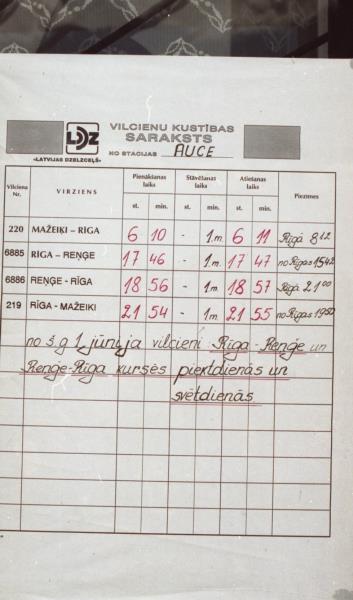 LDZ
«LATVIJAS DZELZCEĻŠ»
VILCIENU KUSTĪBAS
SARAKSTS
NO STACIJAS AUCE
Vilciena Nr. VIRZIENS Pienākšanas laiks Stāvēšanas laiks Atiešanas laiks Piezīmes
st. min. st. min. st. min.
220 MAŽEIĶI – RĪGA 6 10 - 1 m. 6 11 Rīgā 8 12
6885 RĪGA – REŅĢE 17 46 - 1 m. 17 47 no Rīgas 15 42
6886 REŅĢE - RĪGA 18 56 - 1 m. 18 57 Rīgā 21 00
219 RĪGA - MAŽEIKI 21 54 - 1 m 21 55 no Rīgas 19 50
no š.g 1. jūnija vilcieni Rīga - Reņģe un
Reņģe-Rīga kursēs piektdienās un
svētdienās